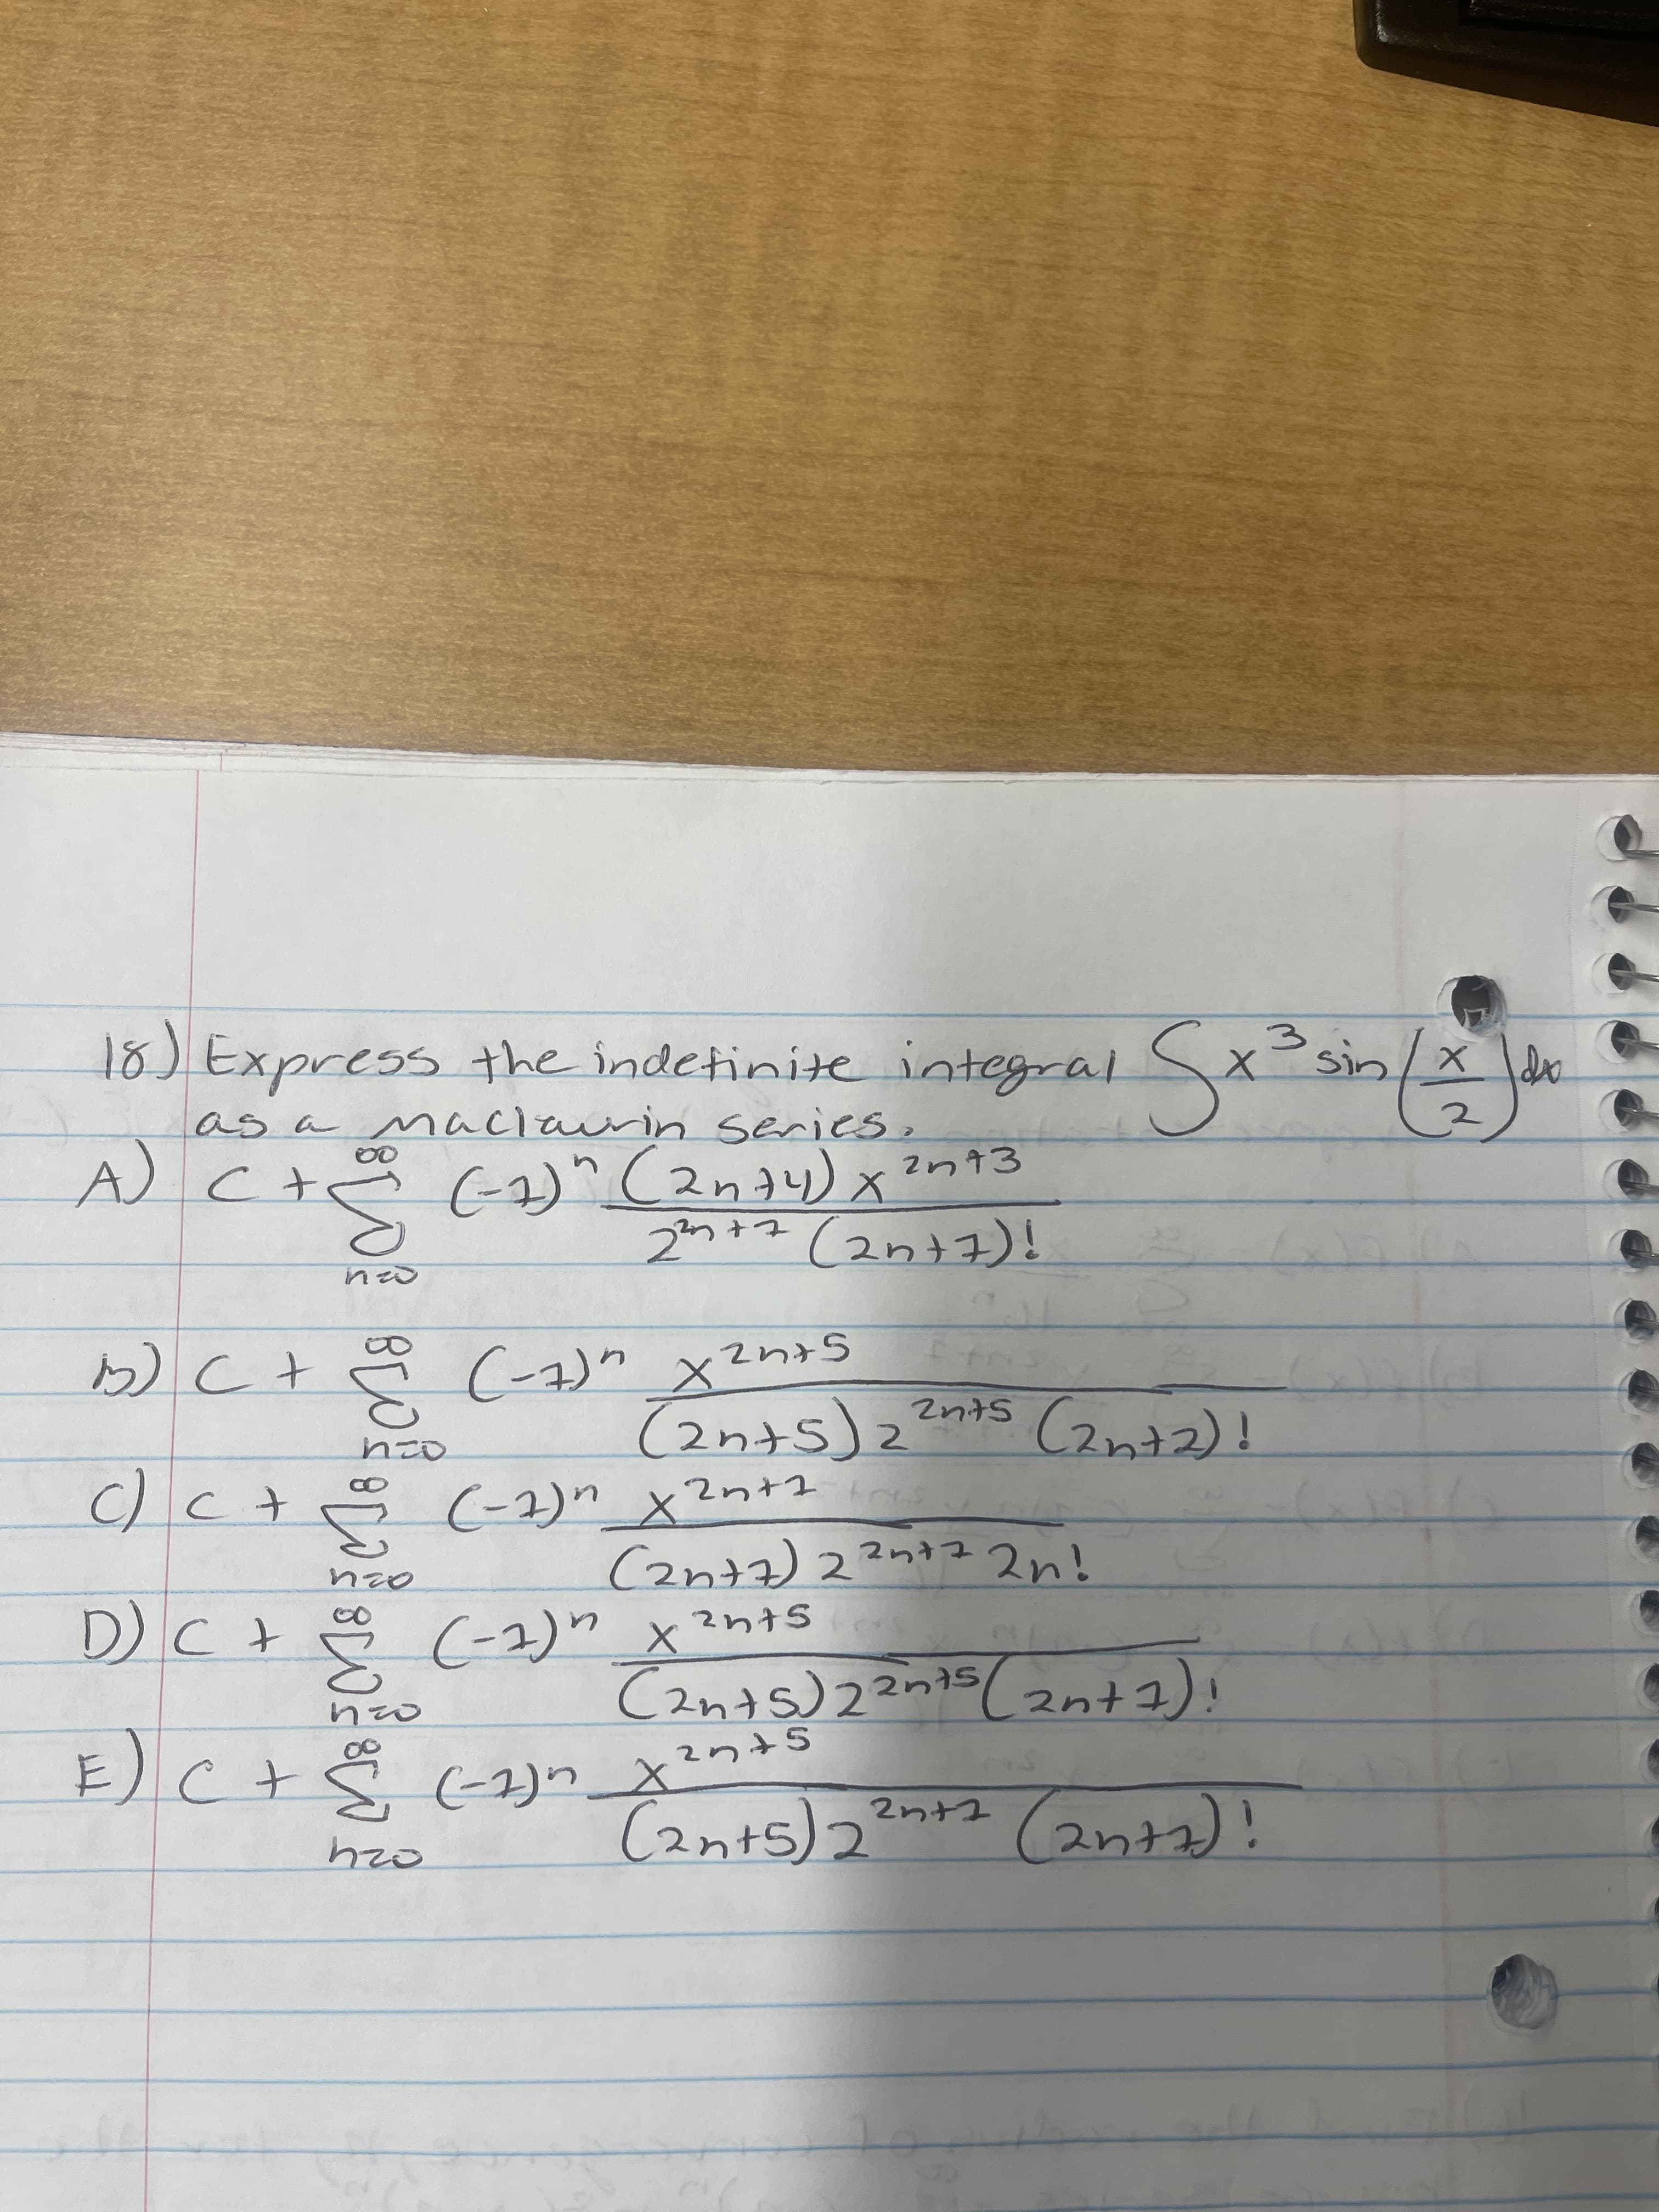 18) Express the indefinite integral ∫ x³ sin (x/2) dx
as a Maclaurin series.
A) C + ∑_{n=0}^{∞} (-1)^n (2n+4) x^{2n+3} / 2^{2n+1} (2n+1)!
B) C + ∑_{n=0}^{∞} (-1)^n x^{2n+5} / (2n+5) 2^{2n+5} (2n+2)!
C) C + ∑_{n=0}^{∞} (-1)^n x^{2n+1} / (2n+1) 2^{2n+1} 2n!
D) C + ∑_{n=0}^{∞} (-1)^n x^{2n+5} / (2n+5) 2^{2n+5} (2n+1)!
E) C + ∑_{n=0}^{∞} (-1)^n x^{2n+5} / (2n+5) 2^{2n+1} (2n+1)!